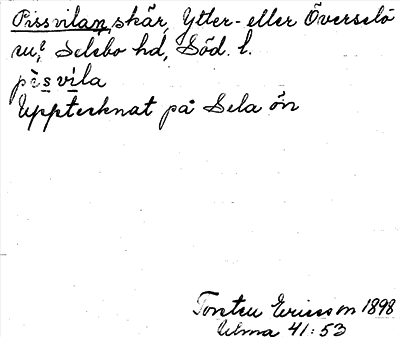 Pissvilan, skär, Ytter- eller Överselö
su, Selebo hd, Söd. l.
pìs vila
Upptecknat på Sela ön
Torsten Ericsson 1898
Ulma 41:53